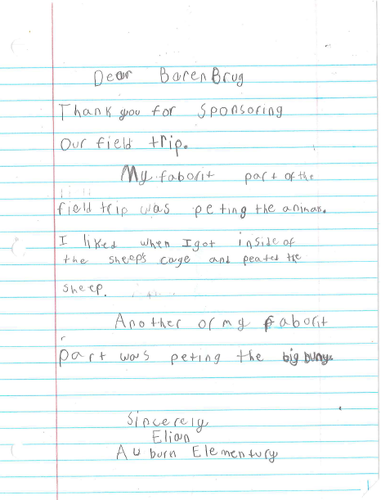 Dear BarenBrug
Thank you for Sponsoring
Our field trip.
My faborit part of the
field trip was peting the animas.
I liked when I got inside of
the sheeps cage and peated the
sheep.
Another of my faborit
part was peting the big bunys
Sincerely
Elian
Auburn Elementury